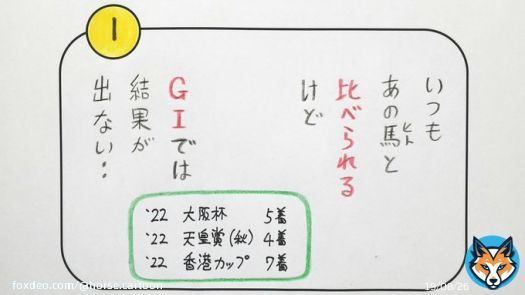 1
いつも
あの馬と
ヒト
比べられる
けど
GIでは
結果が
出ない…
'22 大阪杯 5着
'22 天皇賞(秋) 4着
'22 香港カップ 7着
foxdeo.com/@horse.cartoon
19/08/26